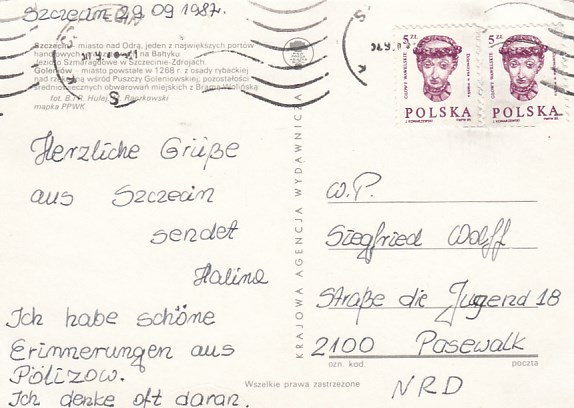 Szczecin 29 09 1987.
Szczecin – miasto nad Odrą, jeden z największych portów
handlowych na Bałtyku
Jezioro Szmaragdowe w Szczecinie-Zdrojach
Goleniów – miasto powstałe w 1268 r. z osady rybackiej
nad rzeką Iną wśród Puszczy Goleniowskiej; pozostałości
średniowiecznych obwarowań miejskich z Bramą Wolińską
fot. B. i R. Hulej, Raczkowski
mapka PPWK
Herzliche Grüße
aus Szczecin
sendet
Halina
Ich habe schöne
Erinnerungen aus
Pölizow.
Ich denke oft daran.
KRAJOWA AGENCJA WYDAWNICZA
5 ZŁ
GŁOWY WAWELSKIE
POLSKA
5 ZŁ
GŁOWY WAWELSKIE
POLSKA
W.P.
Siegfried Wolff
Straße die Jugend 18
2100 Pasewalk
ozn. kod. poczta
NRD
Wszelkie prawa zastrzeżone